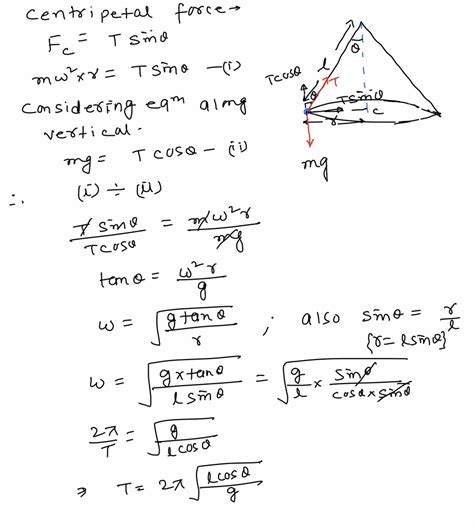 centripetal force→
F_c = T sinθ
mω²×r = T sinθ —(i)
Considering eqᵐ along
vertical.
mg = T cosθ — (ii)
∴ (i) ÷ (ii)
T sinθ / T cosθ = mω²r / mg
tanθ = ω²r / g
ω = √(g tanθ / r) ; also sinθ = r/l
{r = l sinθ}
ω = √(g×tanθ / l sinθ) = √(g/l × sinθ / cosθ×sinθ)
2π/T = √(g / l cosθ)
⇒ T = 2π √(l cosθ / g)
θ
l
T
Tcosθ
θ
Tsinθ
c
r
mg